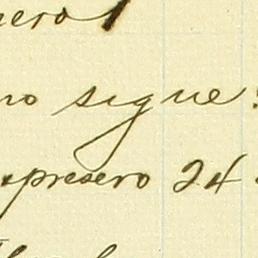 nero
no sigue:
expresero 24